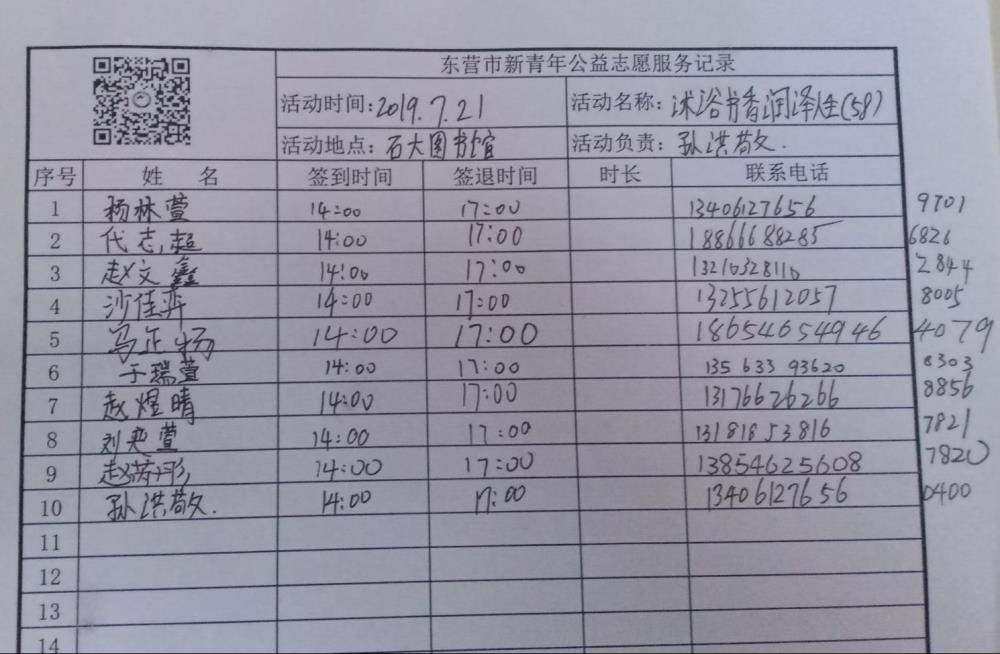 东营市新青年公益志愿服务记录
活动时间:2019.7.21 活动名称:沐浴书香润泽人生(58)
活动地点:石大图书馆 活动负责:孙洪敬文.
序号 姓 名 签到时间 签退时间 时长 联系电话
1 杨林萱 14:00 17:00 13406127656 9701
2 代志超 14:00 17:00 18866688285 6826
3 赵文鑫 14:00 17:00 13210328110 2844
4 沙佳弈 14:00 17:00 13255612057 8005
5 马正杨 14:00 17:00 18654654946 4079
6 于瑞萱 14:00 17:00 135 633 93620 8303
7 赵煜晴 14:00 17:00 13176626266 8856
8 刘奕萱 14:00 17:00 13181853816 7821
9 赵 彤 14:00 17:00 13854625608 7820
10 孙洪敬文. 14:00 17:00 13406127656 0400
11
12
13
14